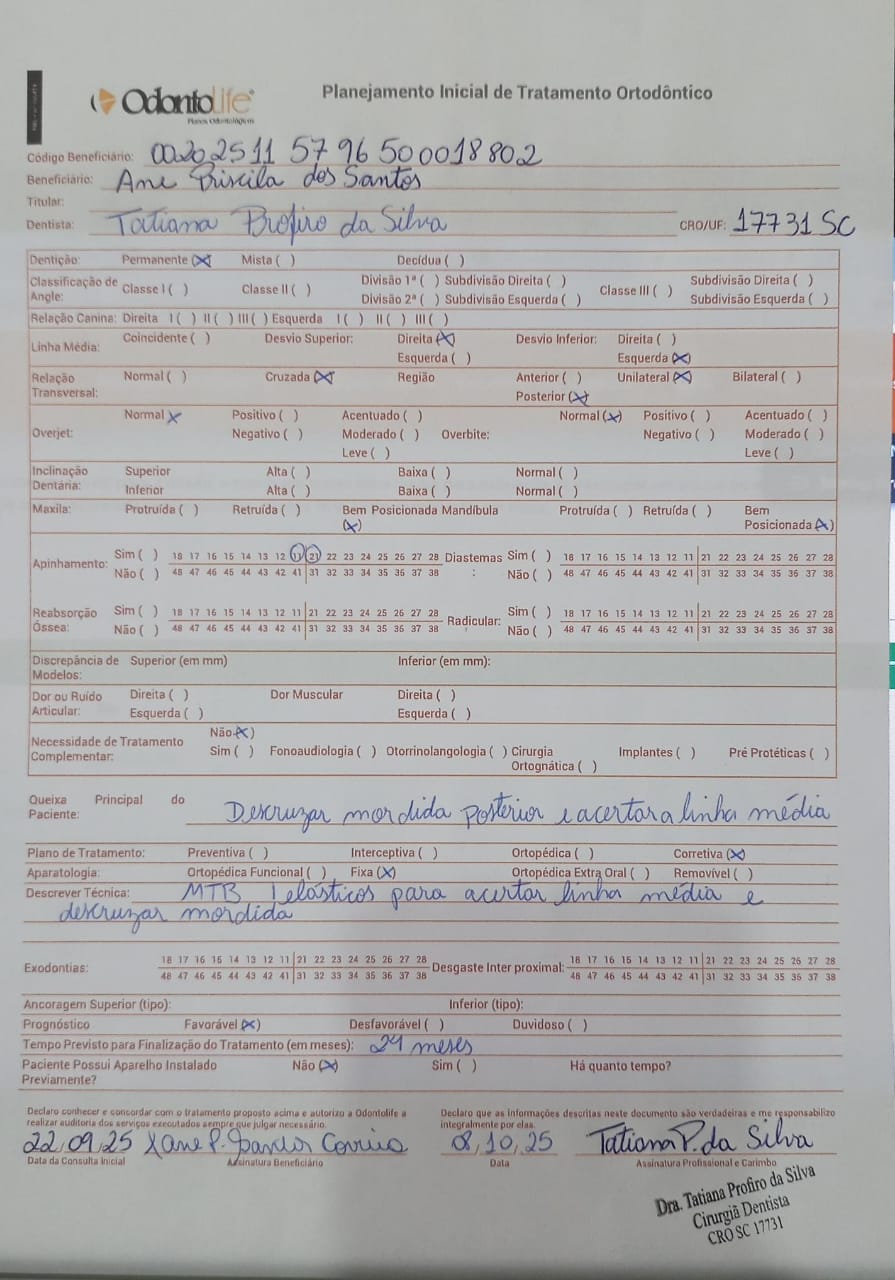 OdontoLife
Planos Odontológicos
Planejamento Inicial de Tratamento Ortodôntico
Código Beneficiário: 00202511 57 96 500018802
Beneficiário: Ane Priscila dos Santos
Titular:
Dentista: Tatiana Profiro da Silva CRO/UF: 17731 SC
Dentição: Permanente (X) Mista ( ) Decídua ( )
Classificação de Angle: Classe I ( ) Classe II ( ) Divisão 1ª ( ) Subdivisão Direita ( ) Classe III ( ) Subdivisão Direita ( )
Divisão 2ª ( ) Subdivisão Esquerda ( ) Subdivisão Esquerda ( )
Relação Canina: Direita I ( ) II ( ) III ( ) Esquerda I ( ) II ( ) III ( )
Linha Média: Coincidente ( ) Desvio Superior: Direita (X) Desvio Inferior: Direita ( )
Esquerda ( ) Esquerda (X)
Relação Transversal: Normal ( ) Cruzada (X) Região Anterior ( ) Unilateral (X) Bilateral ( )
Posterior (X)
Overjet: Normal X Positivo ( ) Acentuado ( ) Overbite: Normal (X) Positivo ( ) Acentuado ( )
Negativo ( ) Moderado ( ) Negativo ( ) Moderado ( )
Leve ( ) Leve ( )
Inclinação Dentária: Superior Alta ( ) Baixa ( ) Normal ( )
Inferior Alta ( ) Baixa ( ) Normal ( )
Maxila: Protruída ( ) Retruída ( ) Bem Posicionada (X) Mandíbula Protruída ( ) Retruída ( ) Bem Posicionada (X)
Apinhamento: Sim ( ) 18 17 16 15 14 13 12 11 21 22 23 24 25 26 27 28 Diastemas: Sim ( ) 18 17 16 15 14 13 12 11 21 22 23 24 25 26 27 28
Não ( ) 48 47 46 45 44 43 42 41 31 32 33 34 35 36 37 38 Não ( ) 48 47 46 45 44 43 42 41 31 32 33 34 35 36 37 38
Reabsorção Óssea: Sim ( ) 18 17 16 15 14 13 12 11 21 22 23 24 25 26 27 28 Radicular: Sim ( ) 18 17 16 15 14 13 12 11 21 22 23 24 25 26 27 28
Não ( ) 48 47 46 45 44 43 42 41 31 32 33 34 35 36 37 38 Não ( ) 48 47 46 45 44 43 42 41 31 32 33 34 35 36 37 38
Discrepância de Modelos: Superior (em mm) Inferior (em mm):
Dor ou Ruído Articular: Direita ( ) Dor Muscular Direita ( )
Esquerda ( ) Esquerda ( )
Necessidade de Tratamento Complementar: Não (X)
Sim ( ) Fonoaudiologia ( ) Otorrinolangologia ( ) Cirurgia Ortognática ( ) Implantes ( ) Pré Protéticas ( )
Queixa Principal do Paciente: Descruzar mordida posterior e acertar a linha média
Plano de Tratamento: Preventiva ( ) Interceptiva ( ) Ortopédica ( ) Corretiva (X)
Aparatologia: Ortopédica Funcional ( ) Fixa (X) Ortopédica Extra Oral ( ) Removível ( )
Descrever Técnica: MTB elásticos para acertar linha média e
descruzar mordida
Exodontias: 18 17 16 15 14 13 12 11 21 22 23 24 25 26 27 28 Desgaste Inter proximal: 18 17 16 15 14 13 12 11 21 22 23 24 25 26 27 28
48 47 46 45 44 43 42 41 31 32 33 34 35 36 37 38 48 47 46 45 44 43 42 41 31 32 33 34 35 36 37 38
Ancoragem Superior (tipo): Inferior (tipo):
Prognóstico Favorável (X) Desfavorável ( ) Duvidoso ( )
Tempo Previsto para Finalização do Tratamento (em meses): 24 meses
Paciente Possui Aparelho Instalado Previamente? Não (X) Sim ( ) Há quanto tempo?
Declaro conhecer e concordar com o tratamento proposto acima e autorizo a Odontolife a
realizar auditoria dos serviços executados sempre que julgar necessário.
Declaro que as informações descritas neste documento são verdadeiras e me responsabilizo
integralmente por elas.
22,09,25 Ane P. Santos 08,10,25 Tatiana P. da Silva
Data da Consulta Inicial Assinatura Beneficiário Data Assinatura Profissional e Carimbo
Dra. Tatiana Profiro da Silva
Cirurgiã Dentista
CRO SC 17731